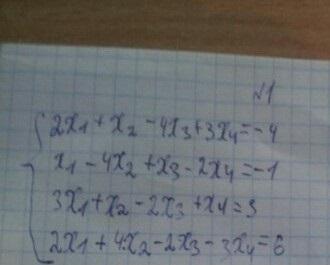 №1
2x₁ + x₂ - 4x₃ + 3x₄ = -4
x₁ - 4x₂ + x₃ - 2x₄ = -1
3x₁ + x₂ - 2x₃ + x₄ = 3
2x₁ + 4x₂ - 2x₃ - 3x₄ = 6